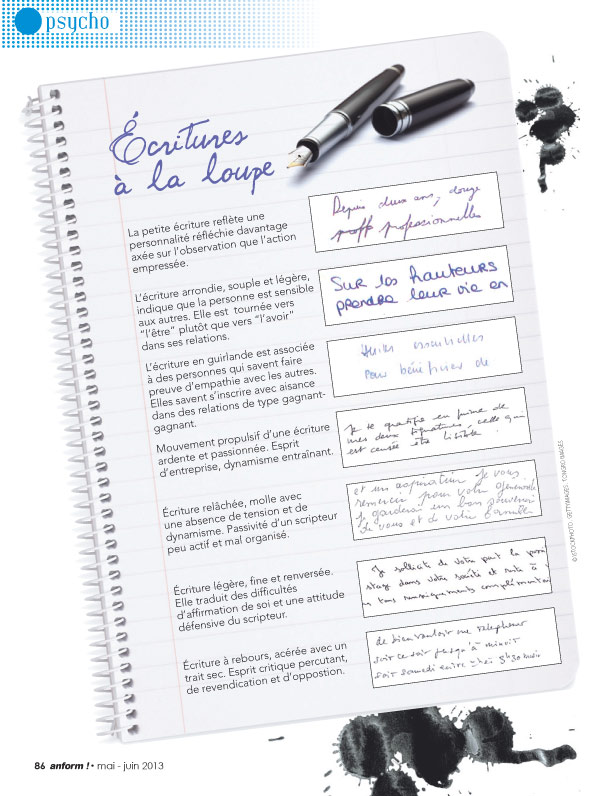 psycho
Écritures
à la loupe
La petite écriture reflète une
personnalité réfléchie davantage
axée sur l'observation que l'action
empressée.
Depuis deux ans, douze
professionnelles
L'écriture arrondie, souple et légère,
indique que la personne est sensible
aux autres. Elle est tournée vers
"l'être" plutôt que vers "l'avoir"
dans ses relations.
Sur les hauteurs
prendre leur vie en
L'écriture en guirlande est associée
à des personnes qui savent faire
preuve d'empathie avec les autres.
Elles savent s'inscrire avec aisance
dans des relations de type gagnant-
gagnant.
Huiles essentielles
Pour bénéficier de
Mouvement propulsif d'une écriture
ardente et passionnée. Esprit
d'entreprise, dynamisme entraînant.
Je te gratifie en prime de
mes deux signatures, celle qui
est censée être lisible.
Écriture relâchée, molle avec
une absence de tension et de
dynamisme. Passivité d'un scripteur
peu actif et mal organisé.
et un aspirateur je vous
remercier pour votre
je garderai un bon souvenir
de vous et de votre famille
Écriture légère, fine et renversée.
Elle traduit des difficultés
d'affirmation de soi et une attitude
défensive du scripteur.
Je sollicite de votre part la
dans votre société et reste à
tous renseignements complémentaires
Écriture à rebours, acérée avec un
trait sec. Esprit critique percutant,
de revendication et d'oppostion.
de bien vouloir me telephoner
soit ce soir jusqu'à minuit
soit samedi entre 9h30
© ISTOCKPHOTO. GETTYIMAGES. TONGRO IMAGES
86 anform ! • mai - juin 2013